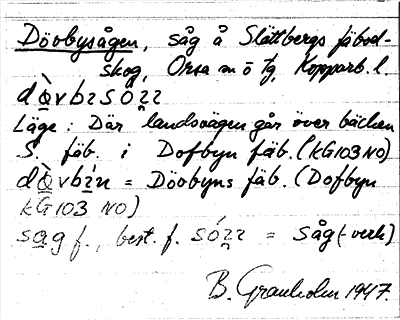 Dövbysågen, såg å Slättbergs fäbod-
skog, Orsa sn ö tg, Kopparb. l.
Läge: Där landsvägen går över bäcken
S. fäb. i Dofbyn fäb. (KG103 NO)
= Dövbyns fäb. (Dofbyn
KG103 NO)
sag f., best. f. = såg (-verk)
B. Granholm 1947.